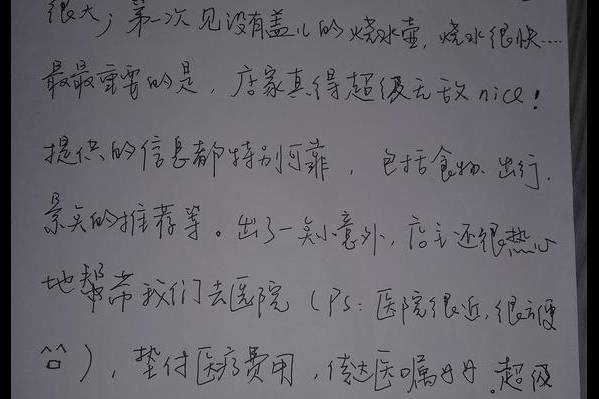 很大；第一次见没有盖儿的烧水壶，烧水很快……
最最重要的是，店家真得超级无敌nice！
提供的信息都特别可靠，包括食物、出行、
景点的推荐等。出了一点小意外，店主还很热心
地帮带我们去医院（PS：医院很近，很方便
^口^），垫付医疗费用，传达医嘱好好。超级